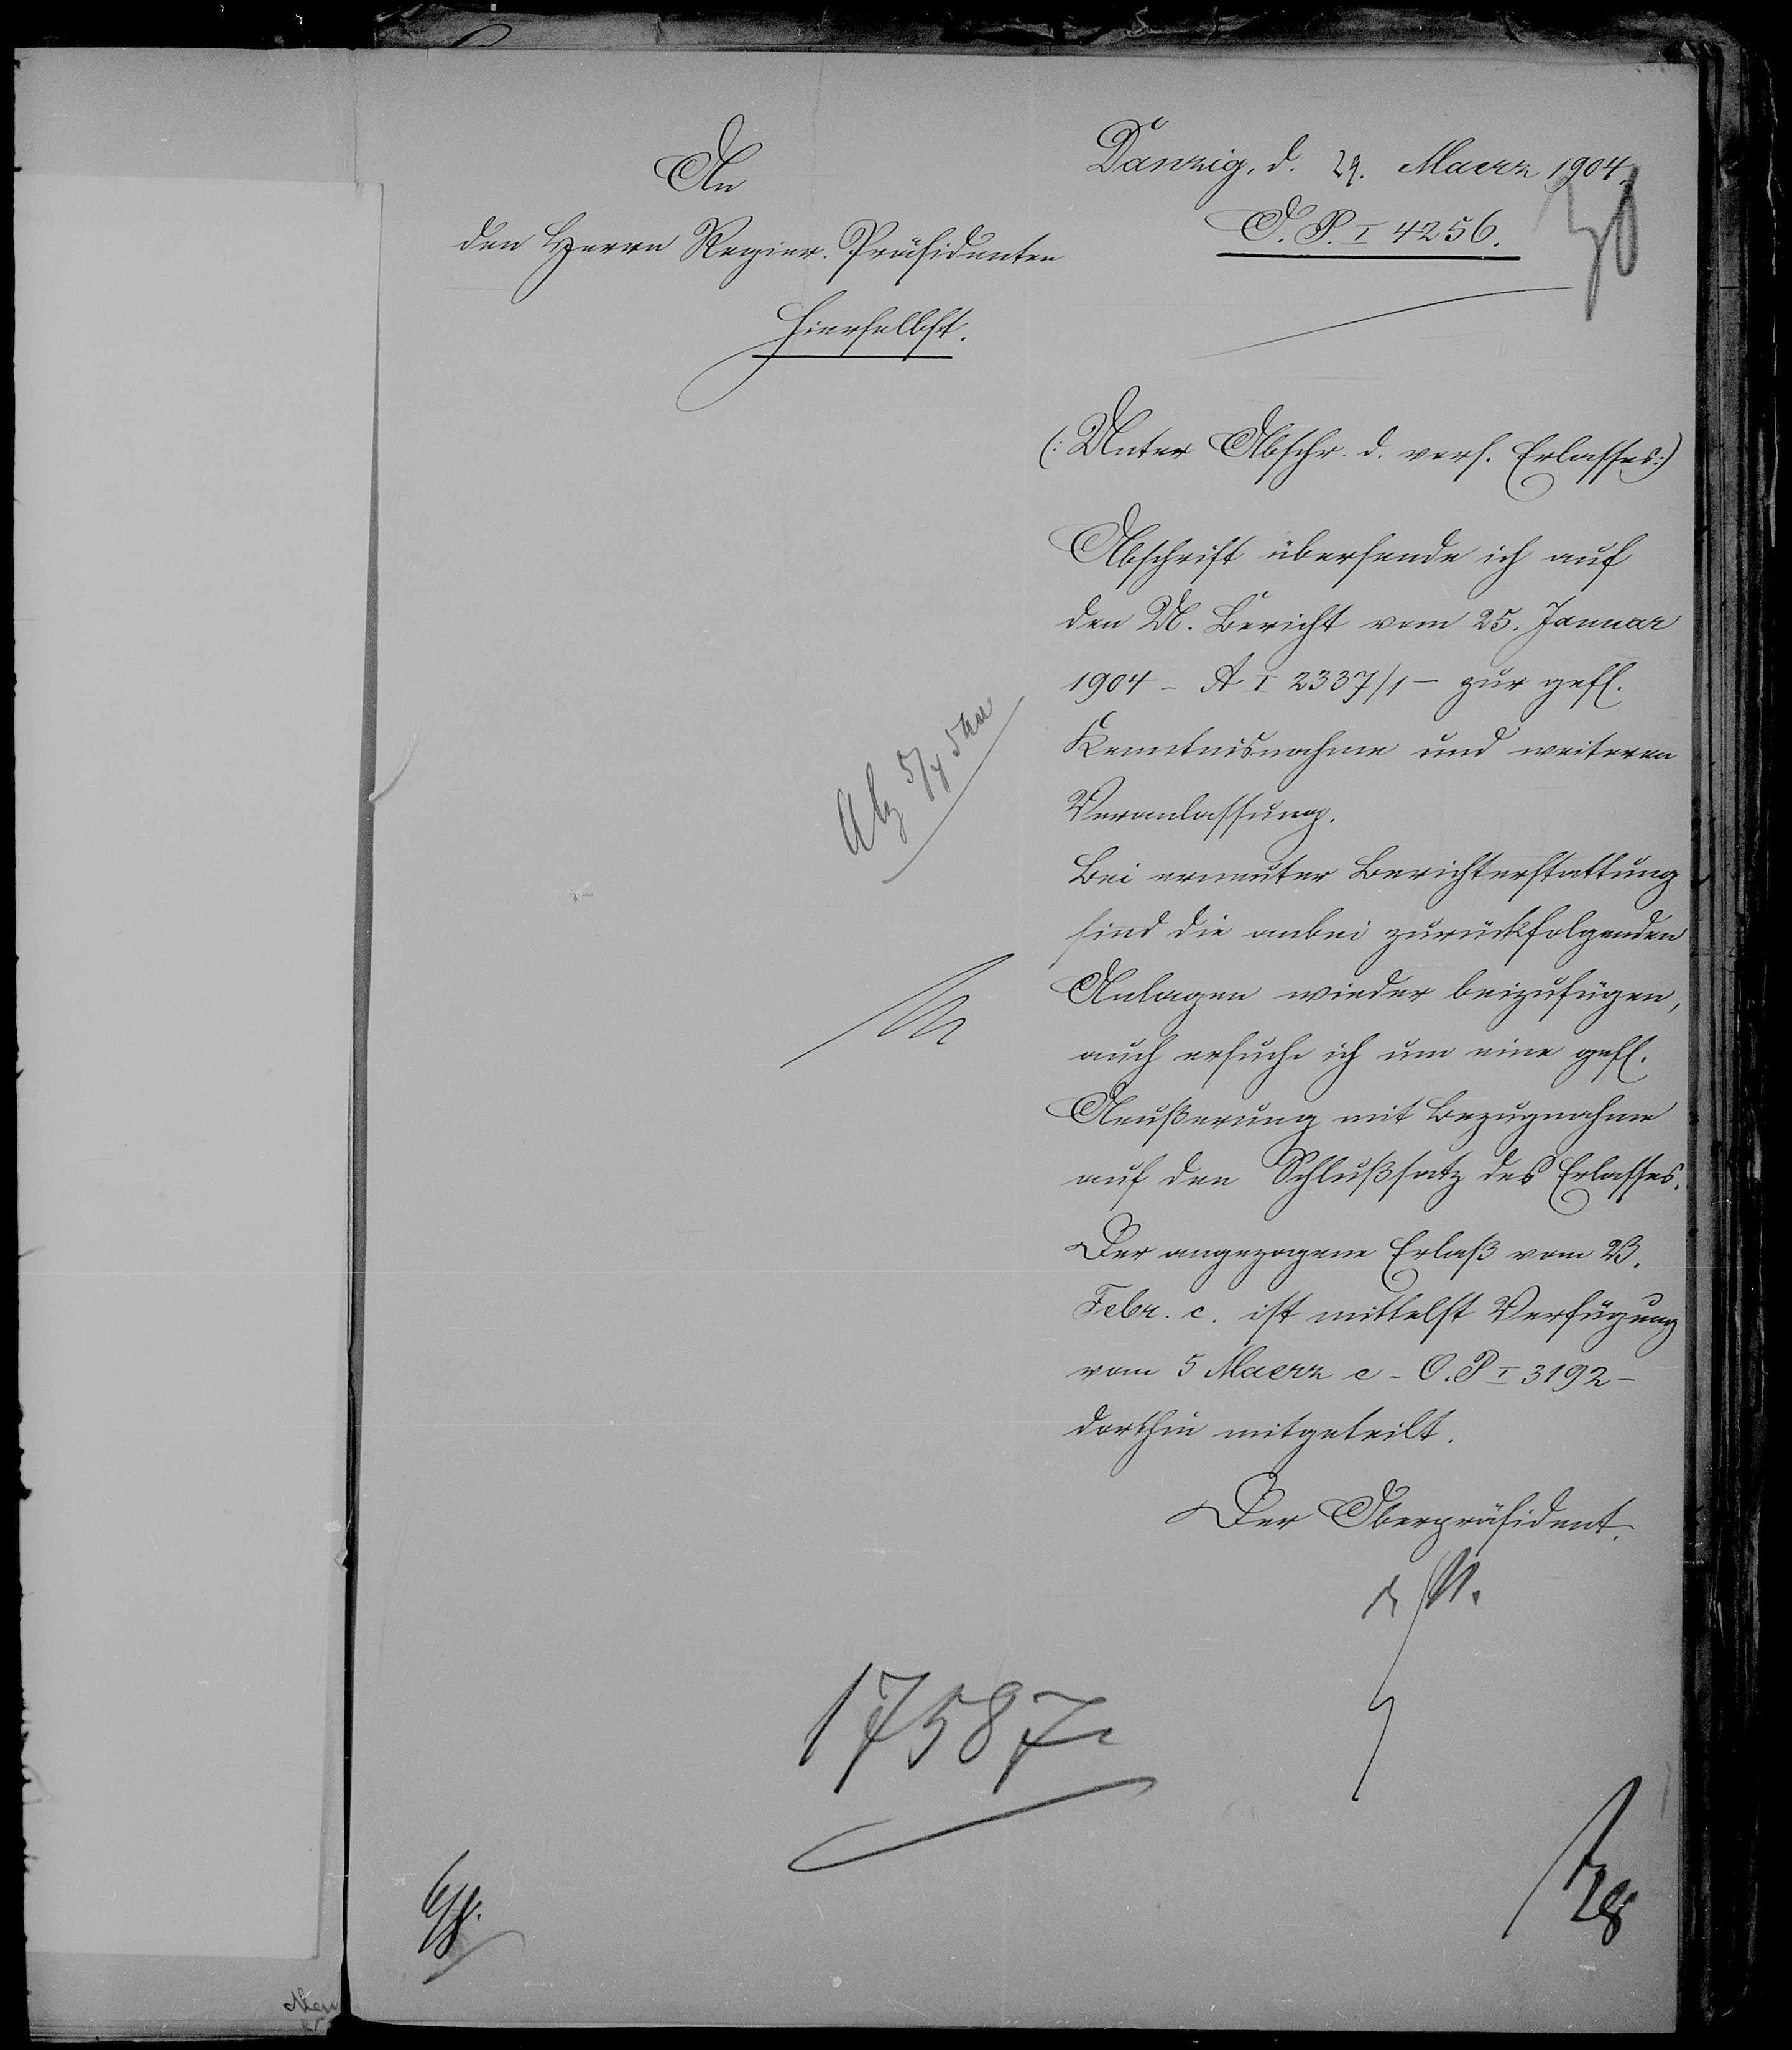 An
den Herrn Regier. Präsidenten
Hierselbst.
Danzig, d. 29. Maerz 1904.
O. P. I 4256.
(: Unter Abschr. d. vors. Erlasses :)
Abschrift übersende ich auf
den U. Bericht vom 25. Januar
1904 - A I 2337/1 - zur gefl.
Kenntnisnahme und weiteren
Veranlassung.
Bei erneuter Berichterstattung
sind die anbei zurückfolgenden
Anlagen wieder beizufügen,
auch ersuche ich um eine gefl.
Aeußerung mit Bezugnahme
auf den Schlußsatz des Erlasses.
Der angezogene Erlaß vom 23.
Febr. c. ist mittelst Verfügung
vom 5 Maerz c - O. P I 3192 -
dorthin mitgeteilt.
Der Oberpräsident.
5/4
17587
28